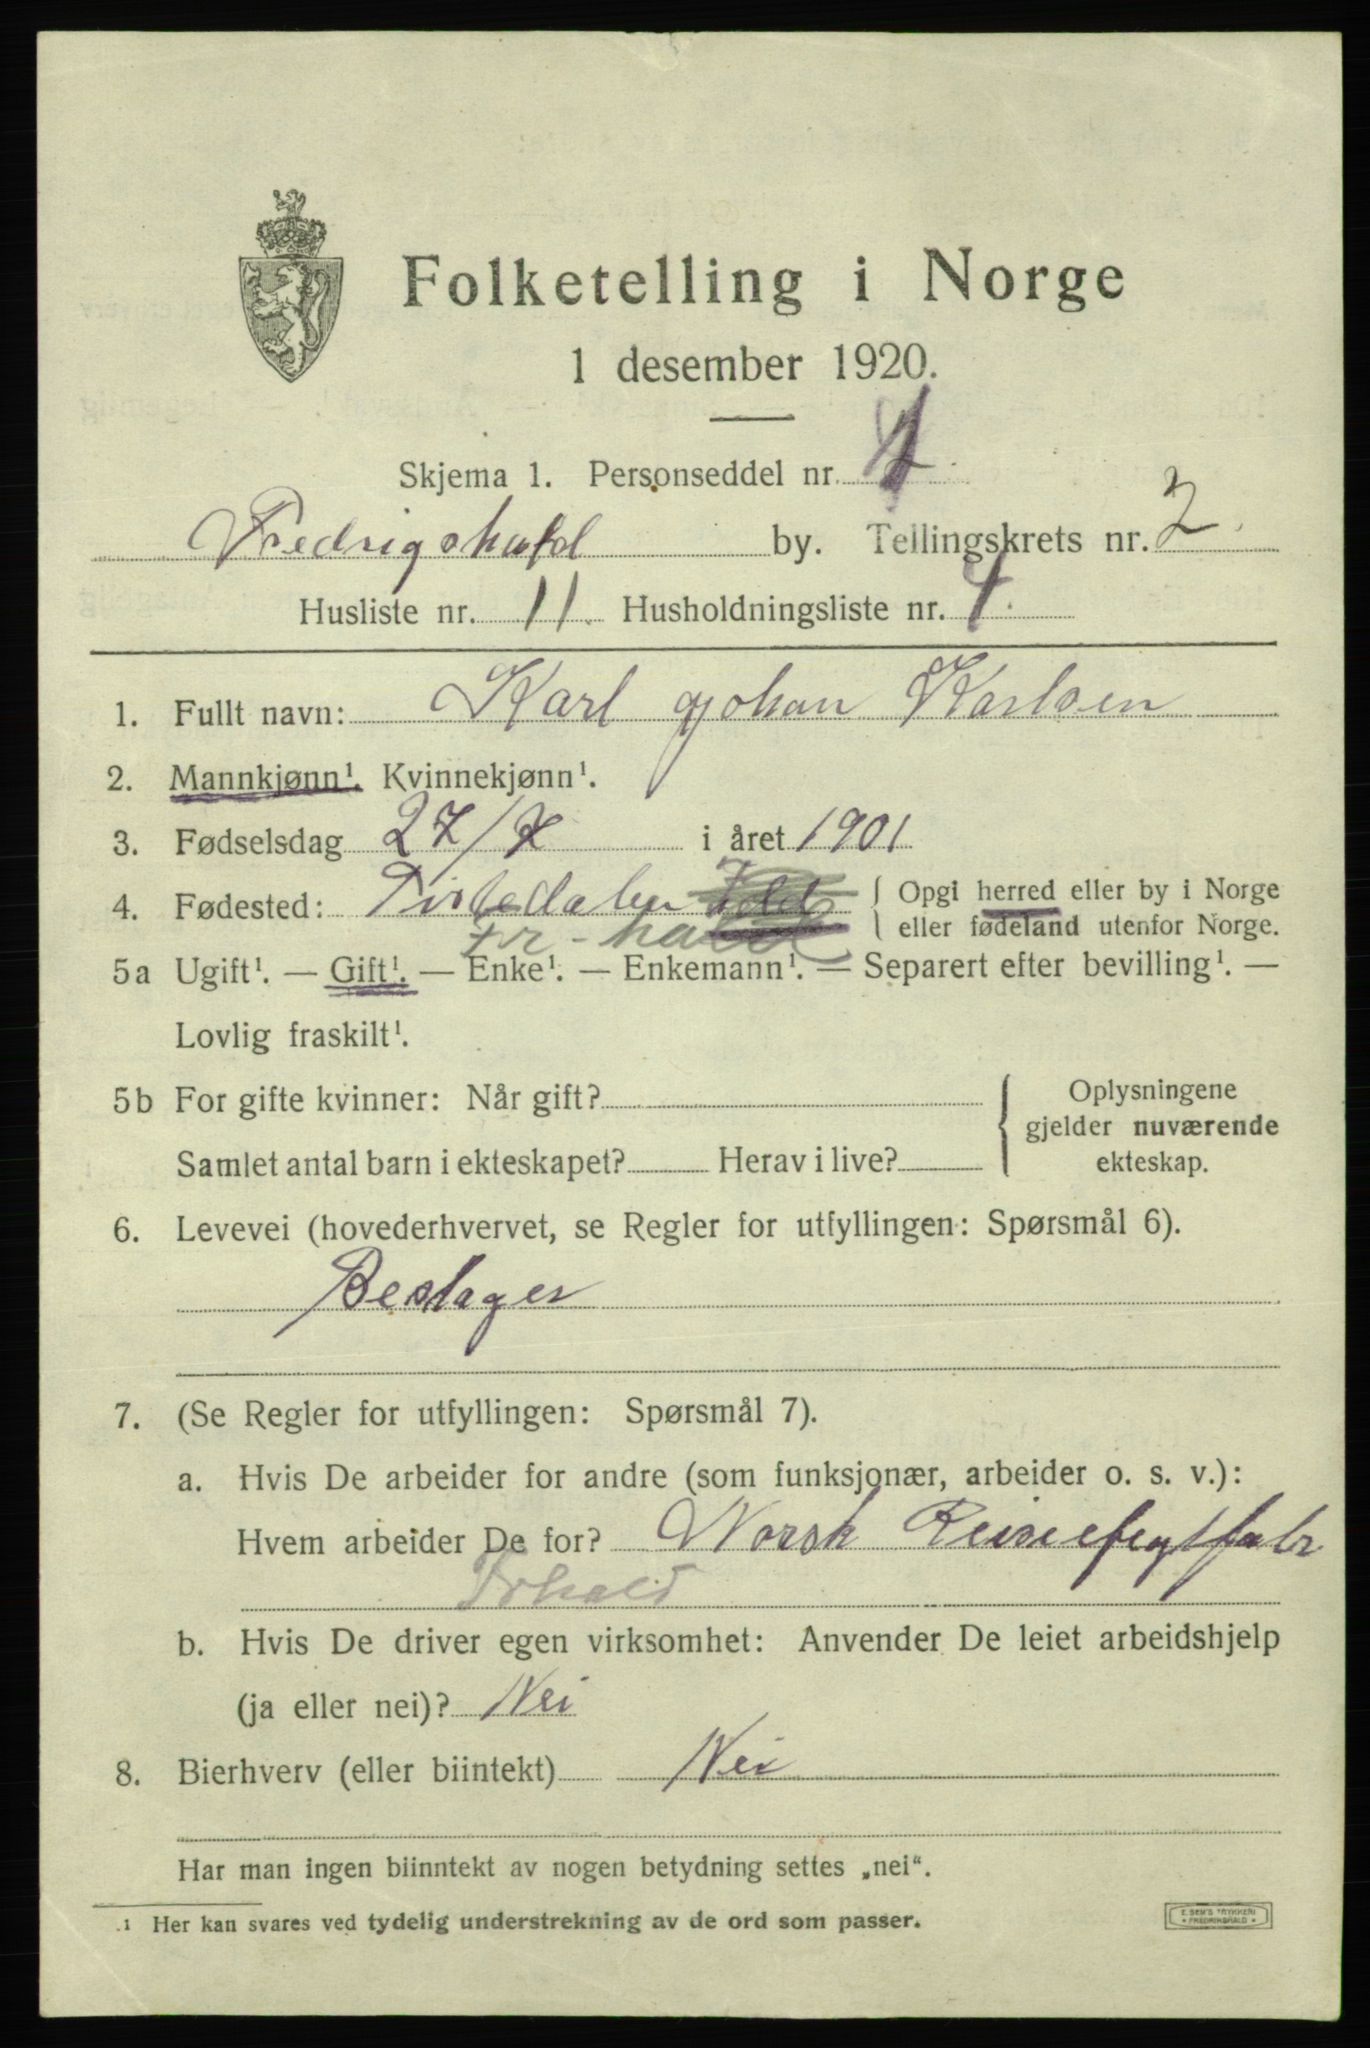 Folketelling i Norge
1 desember 1920.
Skjema 1. Personseddel nr.
Fredrigshald by. Tellingskrets nr. 2.
Husliste nr. 11. Husholdningsliste nr. 4.
1. Fullt navn: Karl Johan Karlsen
2. Mannkjønn¹. Kvinnekjønn¹.
3. Fødselsdag 27/7 i året 1901
4. Fødested: Tistedalen { Opgi herred eller by i Norge
Fr-hald { eller fødeland utenfor Norge.
5a Ugift¹. — Gift¹. — Enke¹. — Enkemann¹. — Separert efter bevilling¹. —
Lovlig fraskilt¹.
5b For gifte kvinner: Når gift? { Oplysningene
gjelder nuværende
Samlet antal barn i ekteskapet? Herav i live? ekteskap.
6. Levevei (hovederhvervet, se Regler for utfyllingen: Spørsmål 6).
Beslager
7. (Se Regler for utfyllingen: Spørsmål 7).
a. Hvis De arbeider for andre (som funksjonær, arbeider o. s. v.):
Hvem arbeider De for? Norsk Reiseefegtfabr
Frhald
b. Hvis De driver egen virksomhet: Anvender De leiet arbeidshjelp
(ja eller nei)? Nei
8. Bierhverv (eller biintekt) Nei
Har man ingen biinntekt av nogen betydning settes „nei“.
¹ Her kan svares ved tydelig understrekning av de ord som passer.
E. SEM'S TRYKKERI
FREDRIKSHALD